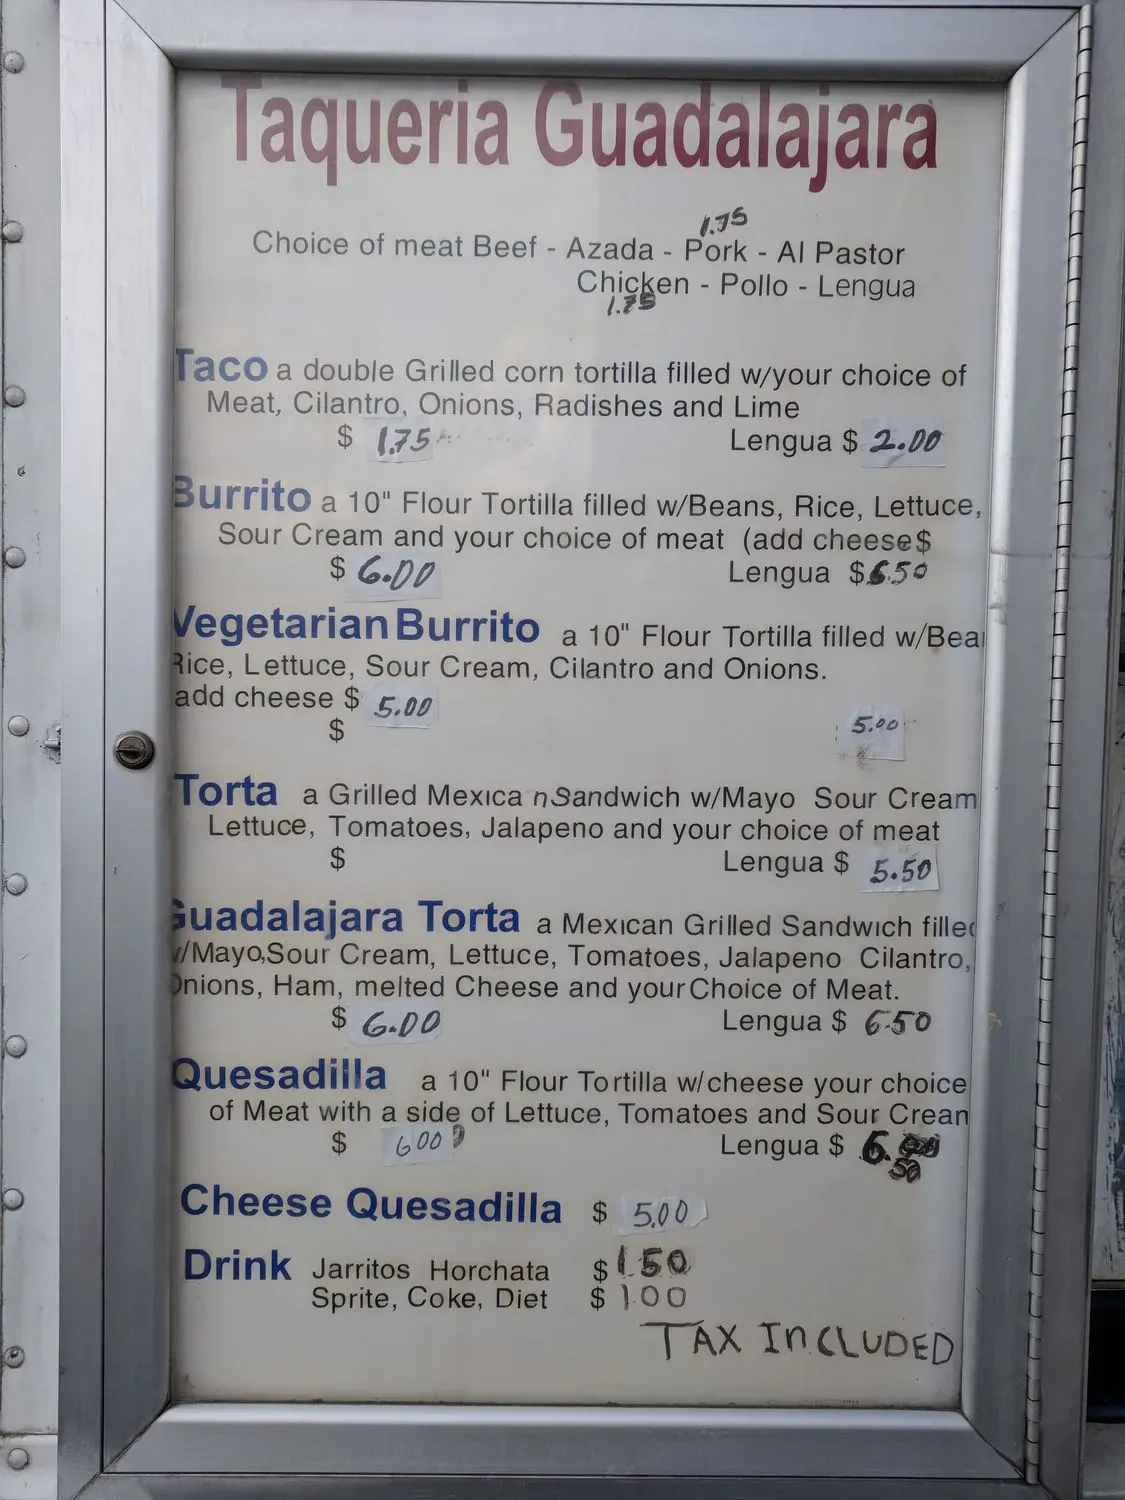 Taqueria Guadalajara
1.75
Choice of meat Beef - Azada - Pork - Al Pastor
Chicken - Pollo - Lengua
1.75
Taco a double Grilled corn tortilla filled w/your choice of
Meat, Cilantro, Onions, Radishes and Lime
$ 1.75 Lengua $ 2.00
Burrito a 10" Flour Tortilla filled w/Beans, Rice, Lettuce,
Sour Cream and your choice of meat (add cheese $
$ 6.00 Lengua $ 6.50
Vegetarian Burrito a 10" Flour Tortilla filled w/Bea
Rice, Lettuce, Sour Cream, Cilantro and Onions.
add cheese $ 5.00
$ 5.00
Torta a Grilled Mexican Sandwich w/Mayo Sour Cream
Lettuce, Tomatoes, Jalapeno and your choice of meat
$ Lengua $ 5.50
Guadalajara Torta a Mexican Grilled Sandwich filled
w/Mayo,Sour Cream, Lettuce, Tomatoes, Jalapeno Cilantro,
Onions, Ham, melted Cheese and your Choice of Meat.
$ 6.00 Lengua $ 6.50
Quesadilla a 10" Flour Tortilla w/cheese your choice
of Meat with a side of Lettuce, Tomatoes and Sour Crean
$ 6.00 Lengua $ 6.
50
Cheese Quesadilla $ 5.00
Drink Jarritos Horchata $ 1.50
Sprite, Coke, Diet $ 1.00
TAX INCLUDED